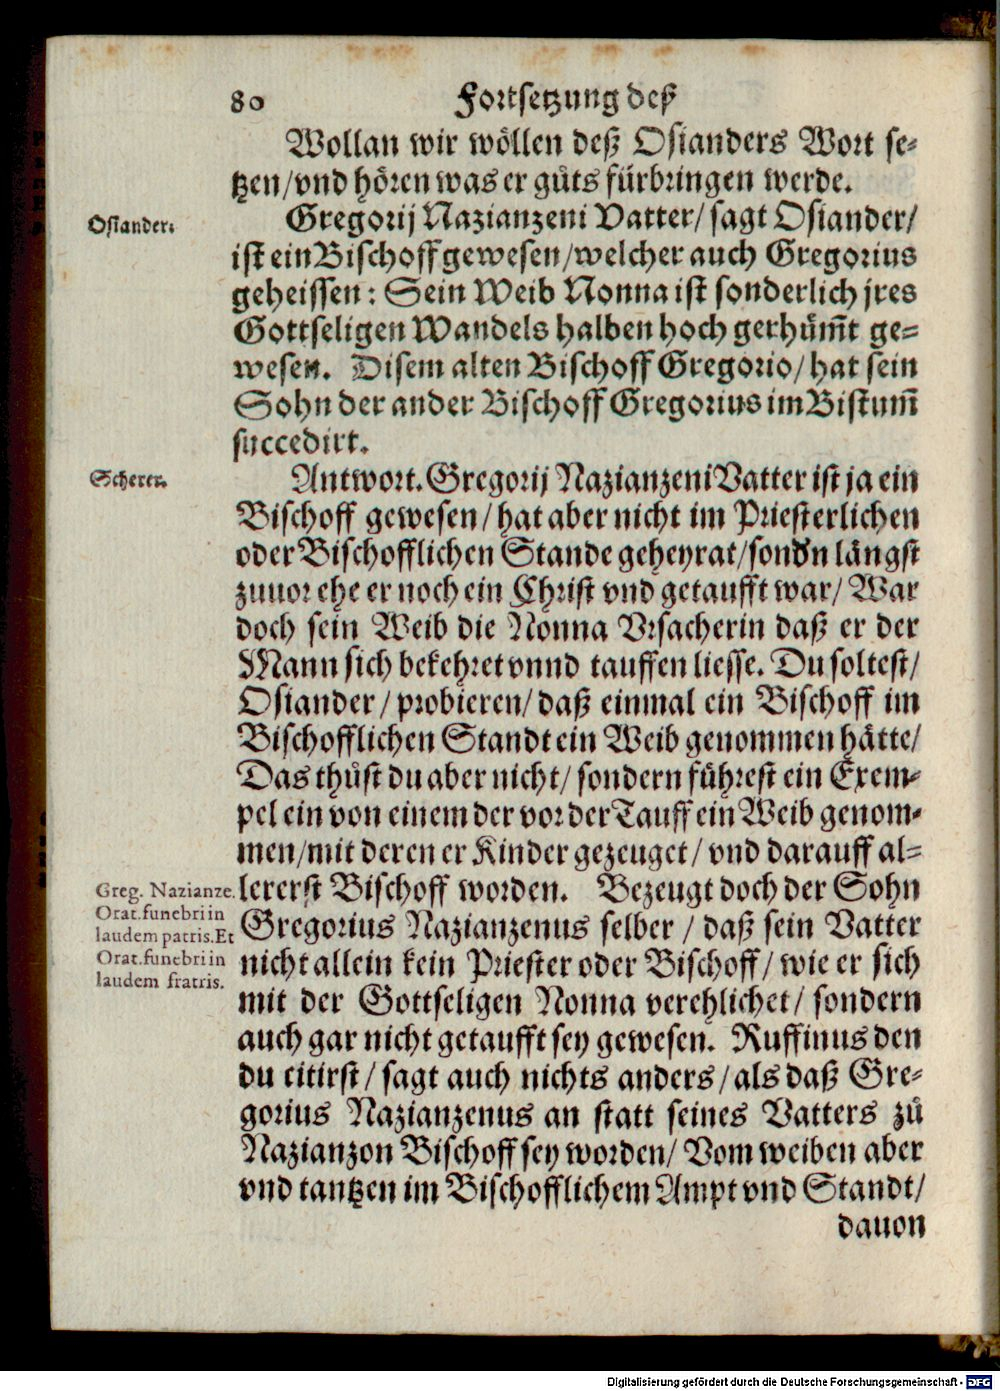 80 Fortsetzung deß
Wollan wir wöllen deß Osianders Wort se-
tzen/vnd hören was er gůts fürbringen werde.
Osiander.
Gregorij Nazianzeni Vatter/ sagt Osiander/
ist ein Bischoff gewesen/welcher auch Gregorius
geheissen: Sein Weib Nonna ist sonderlich jres
Gottseligen Wandels halben hoch gerhům̃t ge-
wesen. Disem alten Bischoff Gregorio/ hat sein
Sohn der ander Bischoff Gregorius im Bistum̃
succedirt.
Scherer.
Antwort. Gregorij Nazianzeni Vatter ist ja ein
Bischoff gewesen/ hat aber nicht im Priesterlichen
oder Bischofflichen Stande geheyrat/sondn längst
zuuor ehe er noch ein Christ vnd getaufft war/ War
doch sein Weib die Nonna Vrsacherin daß er der
Mann sich bekehret vnnd tauffen liesse. Du soltest/
Osiander/ probieren/ daß einmal ein Bischoff im
Bischofflichen Standt ein Weib genommen hätte/
Das thůst du aber nicht/ sondern führest ein Exem-
pel ein von einem der vor der Tauff ein Weib genom-
men/mit deren er Kinder gezeuget/ vnd darauff al-
lererst Bischoff worden. Bezeugt doch der Sohn
Gregorius Nazianzenus selber/ daß sein Vatter
nicht allein kein Priester oder Bischoff/ wie er sich
mit der Gottseligen Nonna verehlichet/ sondern
auch gar nicht getaufft sey gewesen. Ruffinus den
du citirst/ sagt auch nichts anders/ als daß Gre-
gorius Nazianzenus an statt seines Vatters zů
Nazianzon Bischoff sey worden/ Vom weiben aber
vnd tantzen im Bischofflichem Ampt vnd Standt/
dauon
Greg. Nazianze.
Orat. funebri in
laudem patris. Et
Orat. funebri in
laudem fratris.
Digitalisierung gefördert durch die Deutsche Forschungsgemeinschaft - DFG